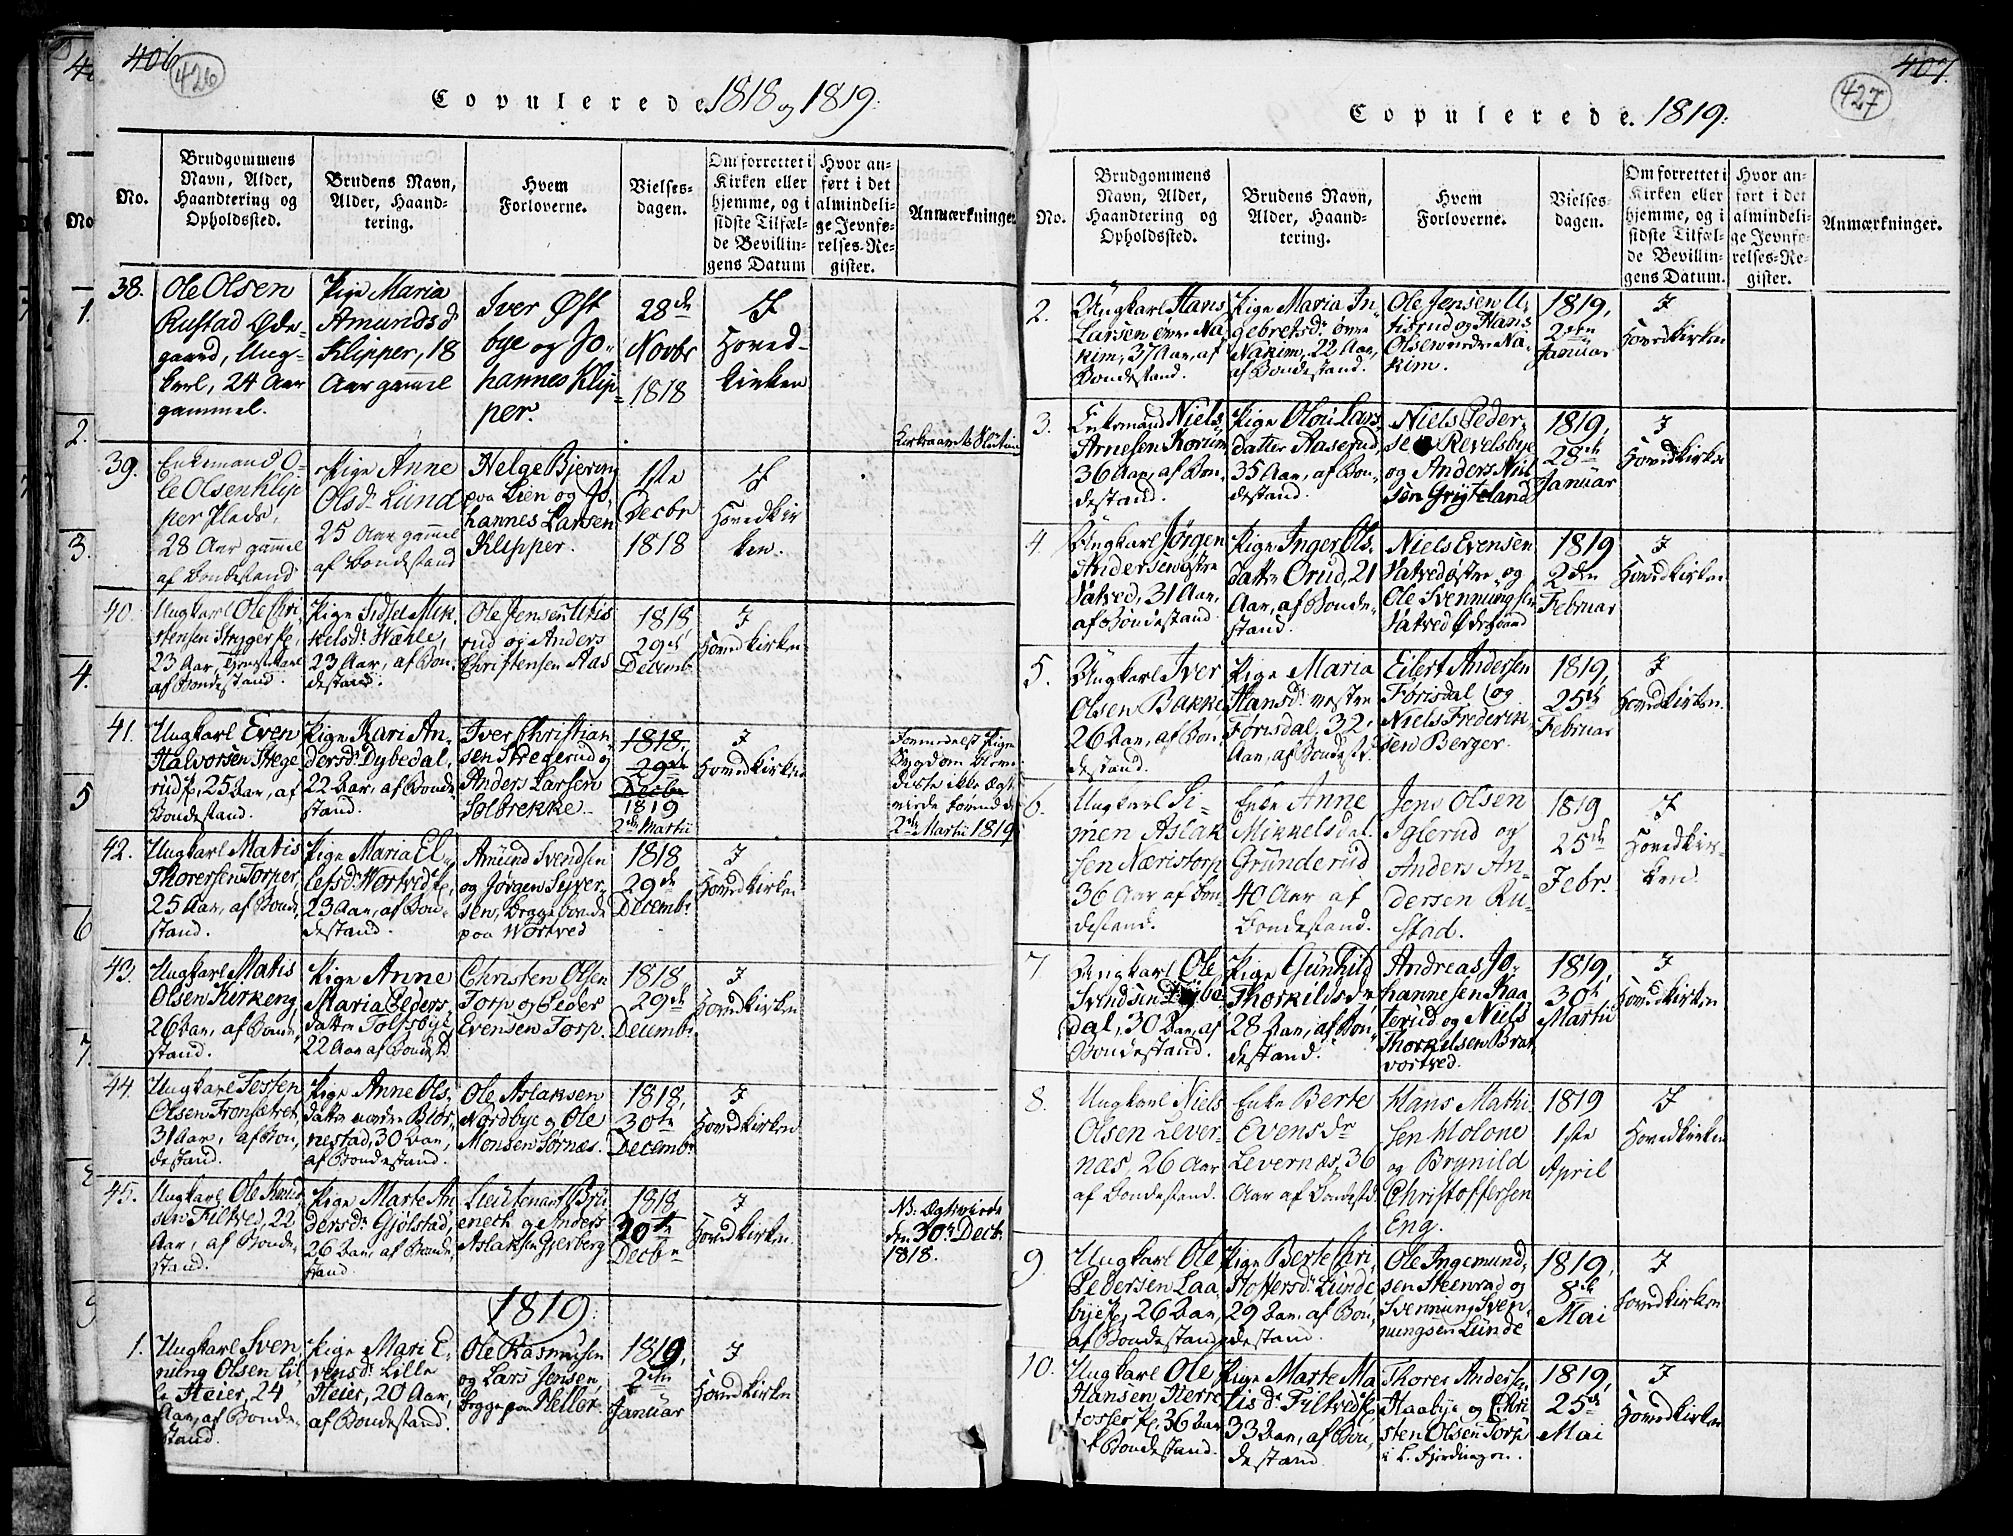 406
426
Copulerede 1818 og 1819:
No.
Brudgommens
Navn, Alder,
Haandtering og
Opholdssted.
Brudens Navn,
Alder, Haand-
tering.
Hvem
Forloverne.
Vielses-
dagen.
Om forrettet i
Kirken eller
hjemme, og i
sidste Tilfæl-
de Bevillin-
gens Datum
Hvor an-
ført i det
almindeli-
ge Jevnfø-
relses-Re-
gister.
Anmærkninger.
38.
Ole Olsen
Rustad Øde-
gaard, Ung-
karl, 24 Aar
gammel.
Pige Maria
Amundsd
Klipper, 18
Aar gammel
Iver Øst
bye og Jo-
hannes Klip
per.
28de
Novbr
1818
I
Hoved-
kirken
Kirkeaarets Slutning
39.
Enkemand O-
le Olsen Klip
per
28 Aar gammel
af Bondestand
Pige Anne
Olsdr Lund
25 Aar gammel
af Bondestand
Helge Bjering
paa Lien og Jo-
hannes Larsen
Klipper.
1ste
Decbr
1818
I
Hovedkir
ken.
40.
Ungkarl Ole Chri-
stensen
23 Aar, Tjenestekarl
af Bondestand.
Pige Sidsel Mik
kelsdr Wæhle,
23 Aar, af Bon-
destand.
Ole Jensen Utis
rud og Anders
Christensen Aas
1818
29de
Decembr
I
Hovedkirken
41.
Ungkarl Even
Halvorsen Stege
rud, 25 Aar, af
Bondestand.
Pige Kari An-
dersdr Dybedal,
22 Aar, af Bonde-
stand.
Iver Christian-
sen Stegerud og
Anders Larsen
Solbrekke.
1818,
29de
Decbr
1819
2den Martii
I
Hovedkirken
Formedelst Pigens
Sygdom bleve
disse ikke Ægte-
viede førend d.
2den Martii 1819
42.
Ungkarl Matis
Thorersen Torper,
25 Aar, af Bonde
stand.
Pige Maria El-
lefsdr Wortved
23 Aar, af Bon-
destand.
Amund Svendsen
og Jørgen Syver-
sen, begge boende
paa Wortved
1818
29de
Decembr
I
Hovedkirken
43.
Ungkarl Matis
Olsen Kirkeng,
26 Aar, af Bonde-
stand.
Pige Anne
Maria Peders-
datter Tolfsbye,
22 Aar af Bondestd
Christen Olsen
Torp og Peder
Evensen Torp.
1818,
29de
Decembr
I
Hovedkirken
44.
Ungkarl Testen
Olsen Fronsætret
31 Aar, af Bon-
destand.
Pige Anne Ols-
datter nordre Blør-
nestad, 30 Aar,
af Bondestand.
Ole Aslaksen
Nordbye og Ole
Monsen Sørnæs.
1818,
30te
Decembr
I
Hovedkirken
45.
Ungkarl Ole Knud
sen Filtved, 22
Aar, af Bonde-
stand.
Pige Marte An-
dersdr Gjølstad,
26 Aar, af Bonde-
stand.
Lieutenant Brü
nech og Anders
Aslaksen Gjerberg
1818,
30te
Decbr
I
Hovedkirken.
NB. Ægteviede
den 30te Decbr
1818.
1819:
1.
Ungkarl Sven-
nung Olsen lil
le Heier, 24
Aar, af Bonde-
stand.
Pige Mari E-
vensdr Lille
Heier, 20 Aar,
af Bondestand.
Ole Rasmusen
og Lars Jensen,
begge paa Heller.
1819,
2den
Januar
I
Hovedkirken
407.
427
Copulerede. 1819:
No.
Brudgommens
Navn, Alder,
Haandtering og
Opholdssted.
Brudens Navn,
Alder, Haand-
tering.
Hvem
Forloverne.
Vielses-
dagen.
Om forrettet i
Kirken eller
hjemme, og i
sidste Tilfæl-
de Bevillin-
gens Datum.
Hvor an-
ført i det
almindeli-
ge Jevnfø-
relses-Re-
gister.
Anmærkninger.
2.
Ungkarl Hans
Larsen øvre Na-
kim, 37 Aar, af
Bondestand.
Pige Maria In-
gebretsdr øvre
Nakim, 22 Aar,
af Bondestand.
Ole Jensen U-
tisrud og Hans
Olsen nedre Na-
kim.
1819,
2den
Januar
I
Hovedkirken
3.
Enkemand Niels
Arnesen Korum
36 Aar, af Bon-
destand.
Pige Olou Lars
datter Haserud,
35 Aar, af Bon-
destand.
Niels Peder-
sen Revelsbye
og Anders Niel
sen Grysteland
1819,
28de
Januar
I
Hovedkirken
4.
Ungkarl Jørgen
Andersen østre
Satved, 31 Aar,
af Bondestand.
Pige Inger Ols-
datter Orud, 21
Aar, af Bonde-
stand.
Niels Evensen
Satved østre og
Ole Svennungsen
Satved Ødegaard
1819
2den
Februar
I
Hovedkirken
5.
Ungkarl Iver
Olsen Bakke,
26 Aar, af Bon-
destand.
Pige Maria
Hansdr vestre
Førisdal, 32
Aar, af Bondestd.
Eilert Andersen
Førisdal og
Niels Frederik-
sen Berger.
1819,
25de
Februar
I
Hovedkirken.
6.
Ungkarl Si-
men Aslak
sen Næristorp
36 Aar af Bon-
destand.
Enke Anne
Mikkelsdr
Grunderud
40 Aar af
Bondestand.
Jens Olsen
Iglerud og
Anders An-
dersen Ru-
stad.
1819
25de
Febr.
I
Hovedkir-
ken.
7.
Ungkarl Ole
Svendsen Dybe
dal, 30 Aar, af
Bondestand.
Pige Gunhild
Thorkildsdr,
28 Aar, af Bon-
destand.
Andreas Jo-
hannesen Haa
terud og Niels
Thorkilsen Brat
vortved.
1819,
30te
Martii
I
Hovedkirken
8.
Ungkarl Niels
Olsen Lever-
næs, 26 Aar
af Bondestand.
Enke Berte
Evensdr
Levernæs, 36
Aar af Bondestd.
Hans Mathi-
sen Molone
og Brynild
Christoffersen
Eng.
1819
1ste
April
I
Hovedkirken
9.
Ungkarl Ole
Pedersen Laa
bye, 26 Aar,
af Bondestand
Pige Berte Chri-
stoffersdr Lunde
29 Aar, af Bon-
destand.
Ole Ingemund-
sen Steenrad og
Svennung Sven-
nungsen Lunde
1819,
8de
Mai
I
Hovedkirken
10.
Ungkarl Ole
Hansen Herre
fosser, 36 Aar
af Bondestand.
Pige Marte Ma
tisdr Filtved
33 Aar, af Bon-
destand.
Thorer Andersen
Haabye og Chri
sten Olsen Torp
i L. Fjerdingen.
1819,
25de
Mai
I
Hovedkirken